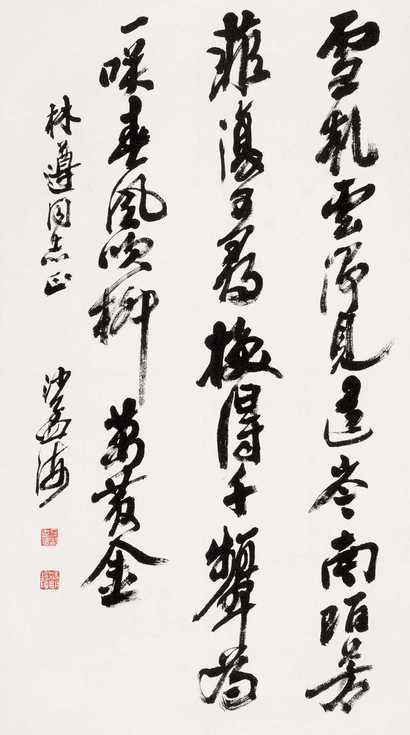 雪乾雲淨見遥岑南陌芳
菲復可尋換得千顰為
一咲春風吹柳萬黄金
林遵同志正
沙孟海